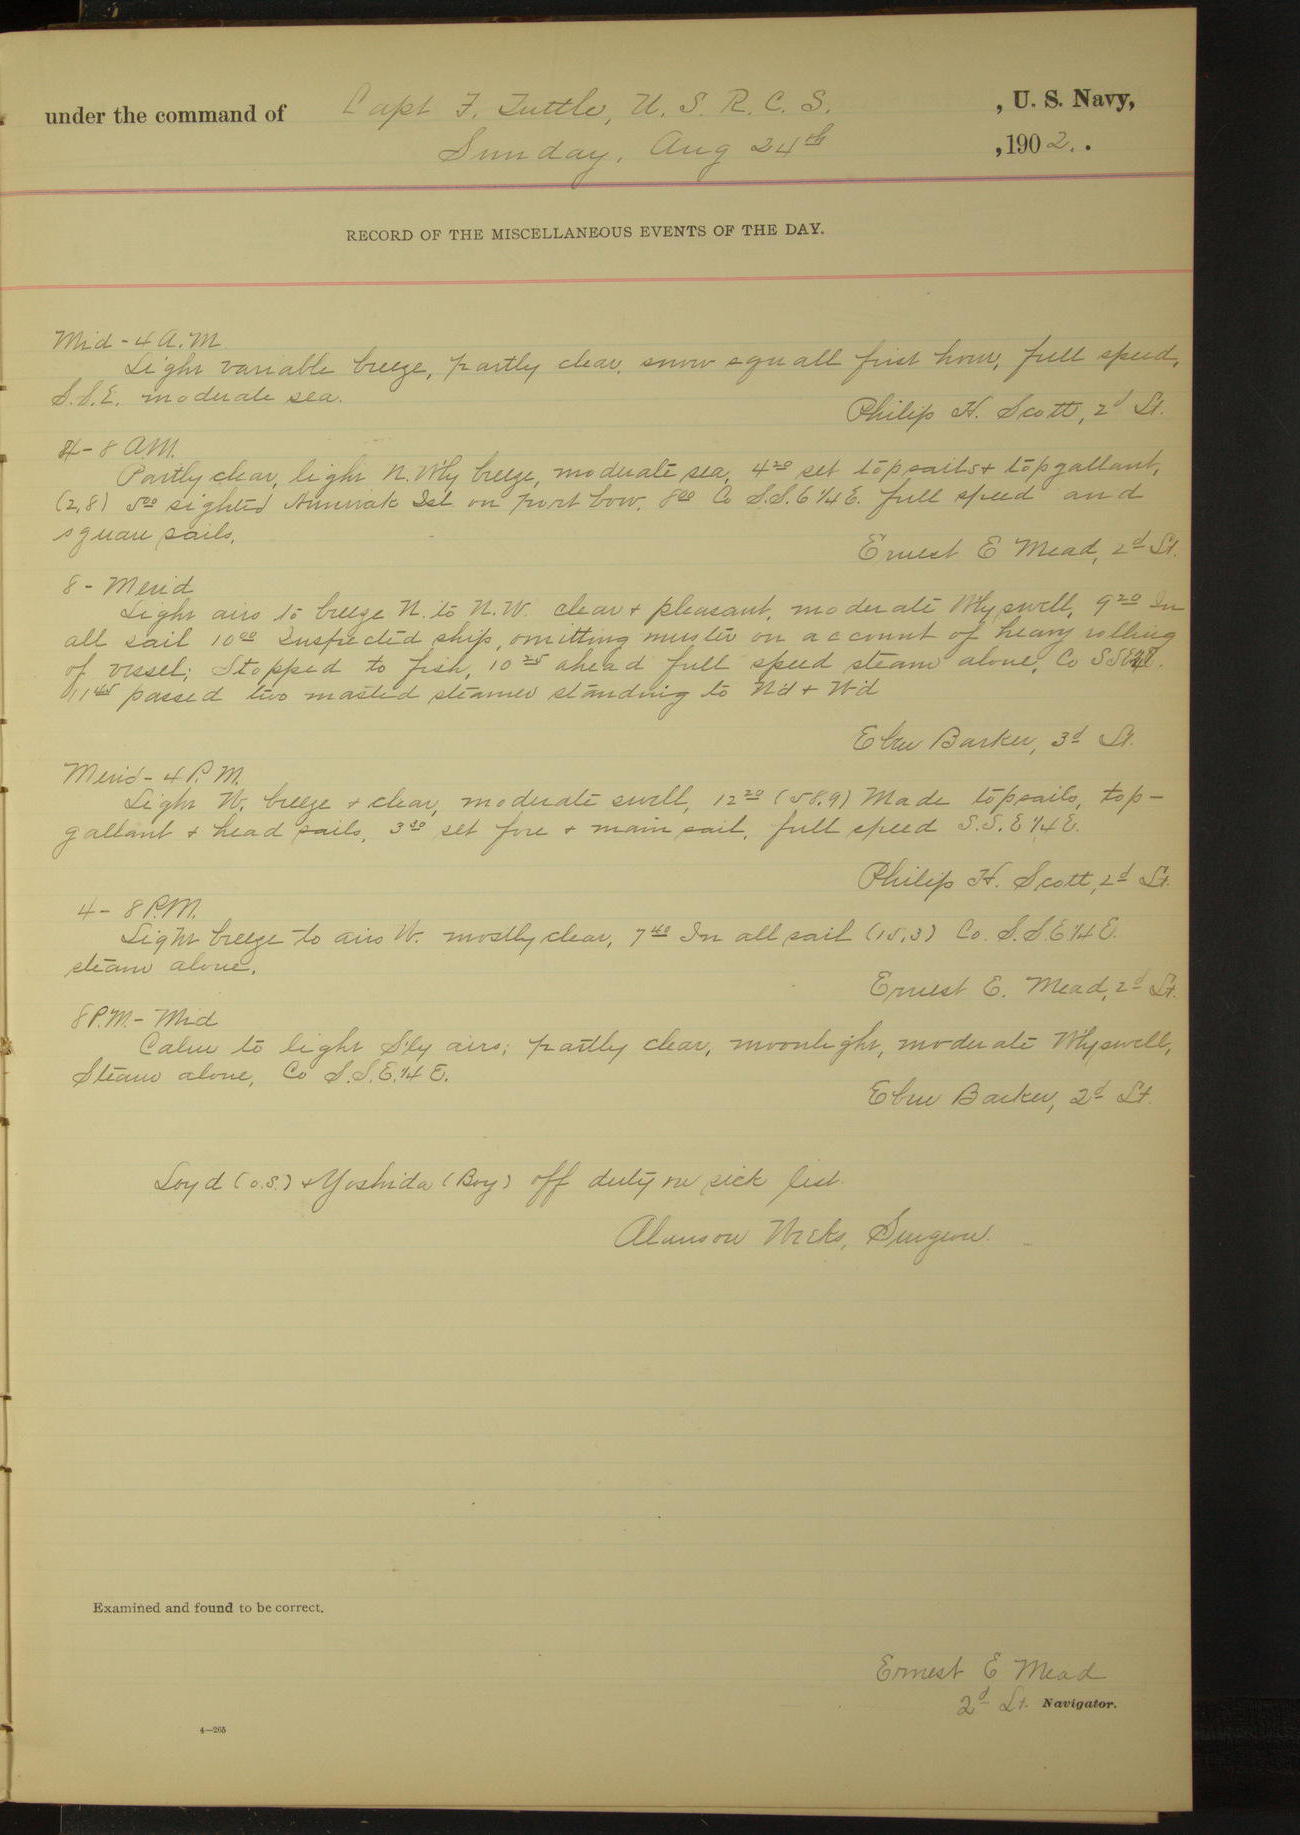 under the command of Capt F. Tuttle, U. S. R. C. S. , U. S. Navy,
Sunday, Aug 24th , 1902. .
RECORD OF THE MISCELLANEOUS EVENTS OF THE DAY.
Mid - 4 A.M.
Light variable breeze, partly clear, snow squall first hour, full speed,
S.S.E. moderate sea.
Philip H. Scott, 2d Lt.
4 - 8 A.M.
Partly clear, light N.W'ly breeze, moderate sea, 4 20 set topsails + topgallant,
(2,8) 5 00 sighted Isl on port bow. 8 00 Co S.S.E 1/4 E. full speed and
square sails.
Ernest E Mead, 2d Lt.
8 - Merid
Light airs to breeze N. to N.W. clear + pleasant, moderate W'ly swell, 9 20 In
all sail 10 00 Inspected ship, omitting muster on account of heavy rolling
of vessel; Stopped to fish, 10 25 ahead full speed steam alone, Co SSE
11 45 passed two masted steamer standing to N'd + W'd
Eben Barker, 3d Lt.
Merid - 4 P.M.
Light W. breeze + clear, moderate swell, 12 20 (58.9) Made topsails, top-
gallant + head sails, 3 30 set fore + main sail, full speed S.S.E 1/4 E.
Philip H. Scott, 2d Lt.
4 - 8 P.M.
Light breeze to airs W. mostly clear, 7 40 In all sail (15.3) Co. S.S.E 1/4 E.
steam alone.
Ernest E. Mead, 2d Lt.
8 P.M. - Mid
Calm to light S'ly airs; partly clear, moonlight, moderate W'ly swell,
Steam alone, Co S.S.E. 1/4 E.
Eben Barker, 2d Lt.
Loyd (O.S.) + Yoshida (Boy) off duty on sick list.
Alanson Weeks, Surgeon.
Examined and found to be correct.
Ernest E Mead
2d Lt. Navigator.
4—265